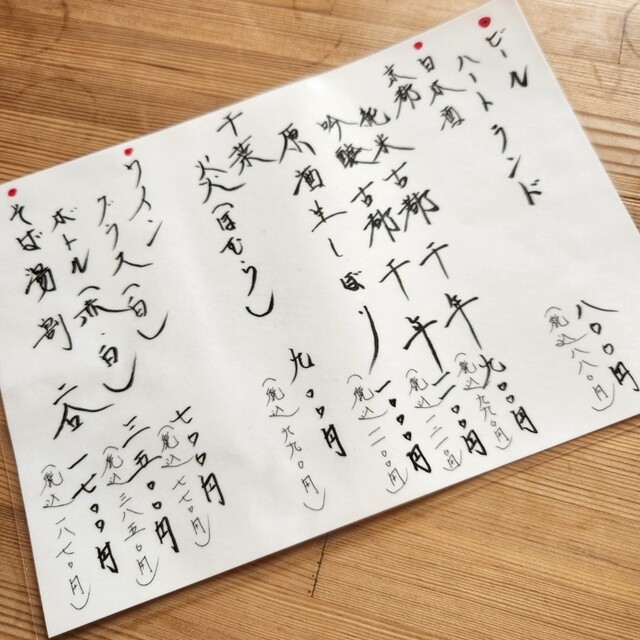 ビール
ハートランド 八〇〇円
(税込八八〇円)
日本酒
京都
純米 古都千年 九〇〇円
(税込九九〇円)
吟醸 古都千年 一一〇〇円
(税込一二一〇円)
原酒生しぼり 一〇〇〇円
(税込一一〇〇円)
千葉
炎(ほむら) 九〇〇円
(税込九九〇円)
ワイン
グラス(白) 七〇〇円
(税込七七〇円)
ボトル(赤・白) 三五〇〇円
(税込三八五〇円)
そば湯割 二合 一七〇〇円
(税込一八七〇円)